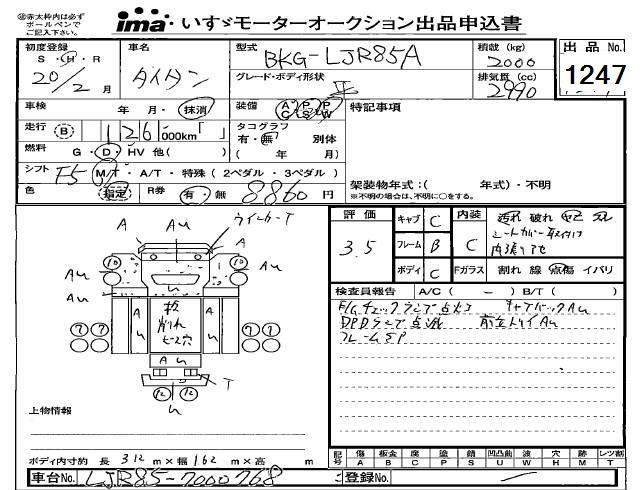 ㊟赤太枠内は必ず
ボールペンで
ご記入下さい。
ima いすゞモーターオークション出品申込書
初度登録
S・H・R
20/2月
車名
タイタン
型式
BKG-LJR85A
グレード・ボディ形状
平
積載 (kg)
2000
排気量 (cc)
2990
出品No.
1247
車検
年 月・抹消
装備 A/C P/S P/W
特記事項
走行 B 126,000km「 」
タコグラフ
有・無 別体
( 年 月)
燃料 G・D・HV 他( )
シフト F5 M/T・A/T・特殊(2ペダル・3ペダル)
色 指定
R券 有・無 8860円
架装物年式:( 年式)・不明
※不明の場合は、不明に○をする。
評価
3.5
キャブ C
フレーム B
ボディ C
内装
C
汚れ 破れ
シートカバー取付け
Fガラス 割れ 線 点傷 イバリ
検査員報告 A/C( - ) B/T( )
F/Gチェックランプ点灯 キャブバックAU
DPDランプ点滅
フレームSP
ウインカーT
A
AU
10
10
AU
AU
A
A
U
板
削れ
ビス穴
AU
A
U
7 7
7 7
A
U
T
12 12
U
上物情報
ボディ内寸約 長 312 m×幅 162 m×高 m
車台No. LJR85-7000768
記号
傷 A
板金 B
腐 C
塗 P
錆 S
凹凸曲 U
波 W
穴 H
跡 M
レツ割 T
登録No.